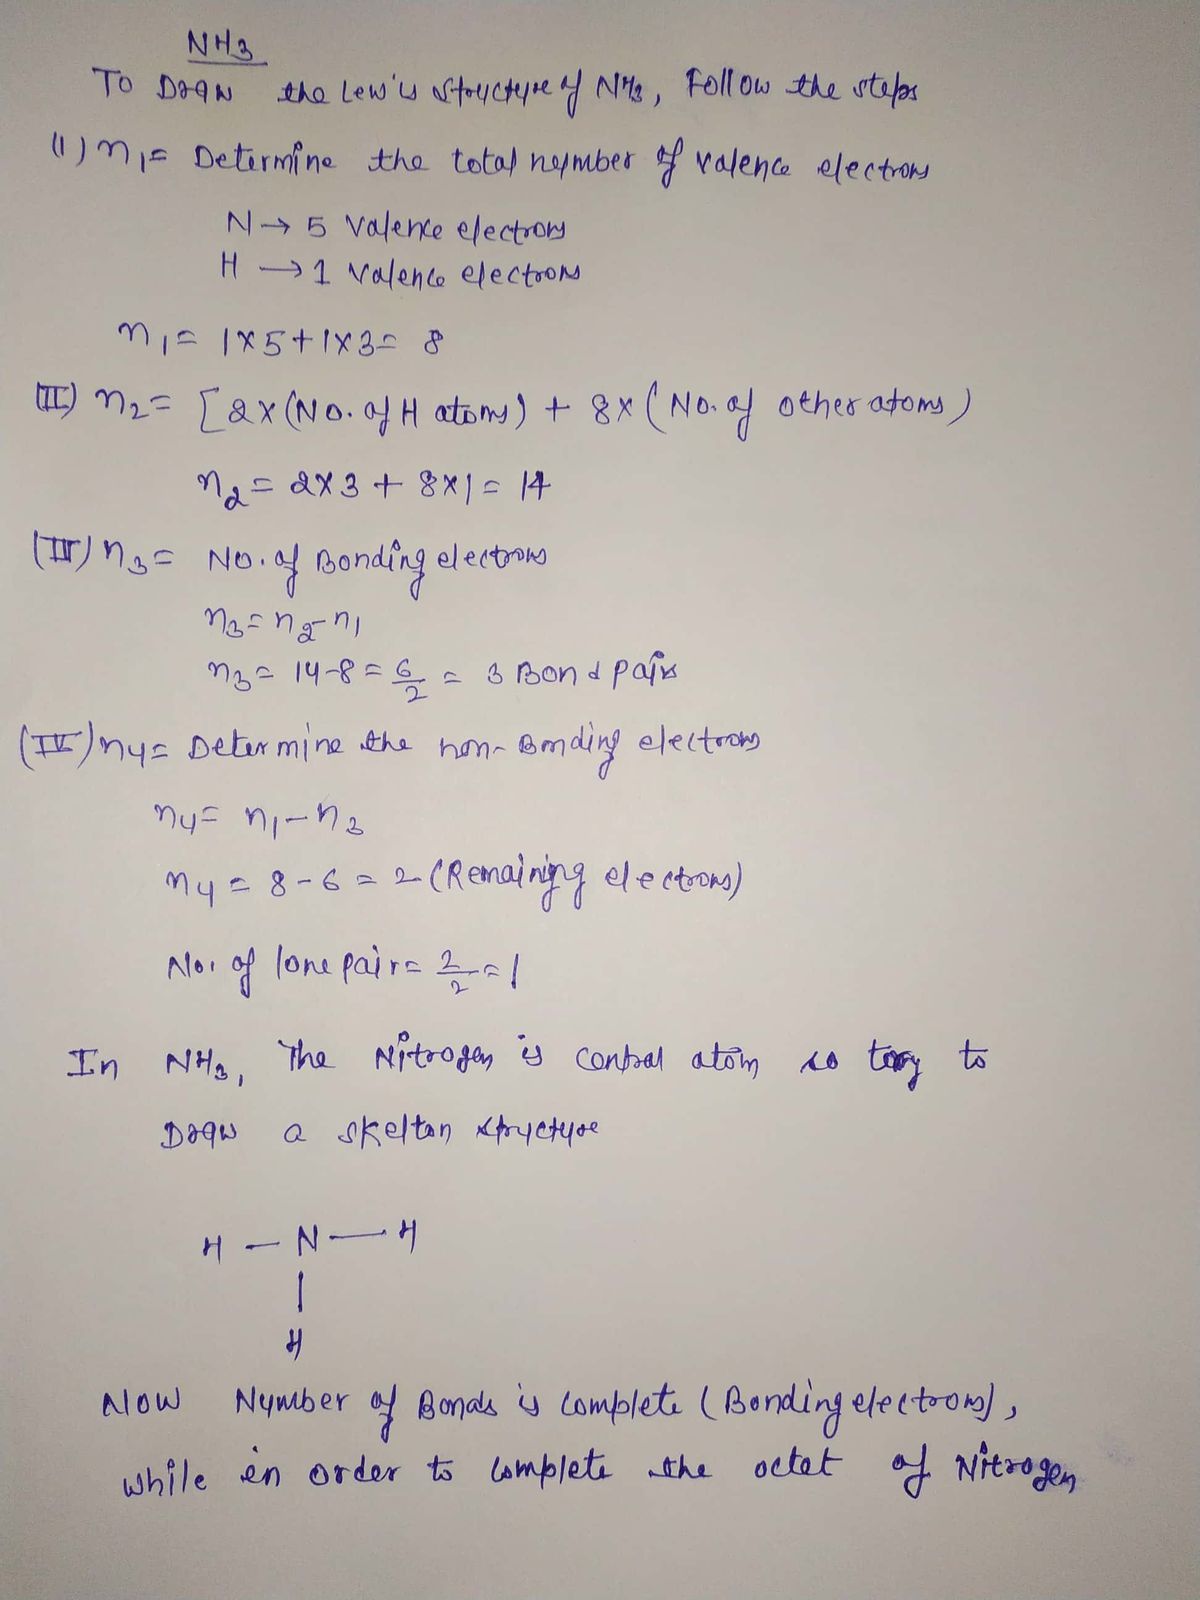 NH3
To Draw the Lewis structure of NH3, Follow the steps
(I) n1= Determine the total number of valence electrons
N → 5 Valence electrons
H → 1 Valence electrons
n1= 1×5+1×3= 8
(II) n2= [2×(No. of H atoms) + 8×(No. of other atoms)
n2= 2×3 + 8×1= 14
(III) n3= No. of Bonding electrons
n3= n2-n1
n3= 14-8= 6/2 = 3 Bond pairs
(IV) n4= Determine the non-Bonding electrons
n4= n1-n3
n4= 8-6 = 2 (Remaining electrons)
No. of lone pair= 2/2=1
In NH3, The Nitrogen is central atom so try to
Draw a skelton structure
H — N — H
|
H
Now Number of Bonds is complete (Bonding electrons),
while in order to complete the octet of Nitrogen